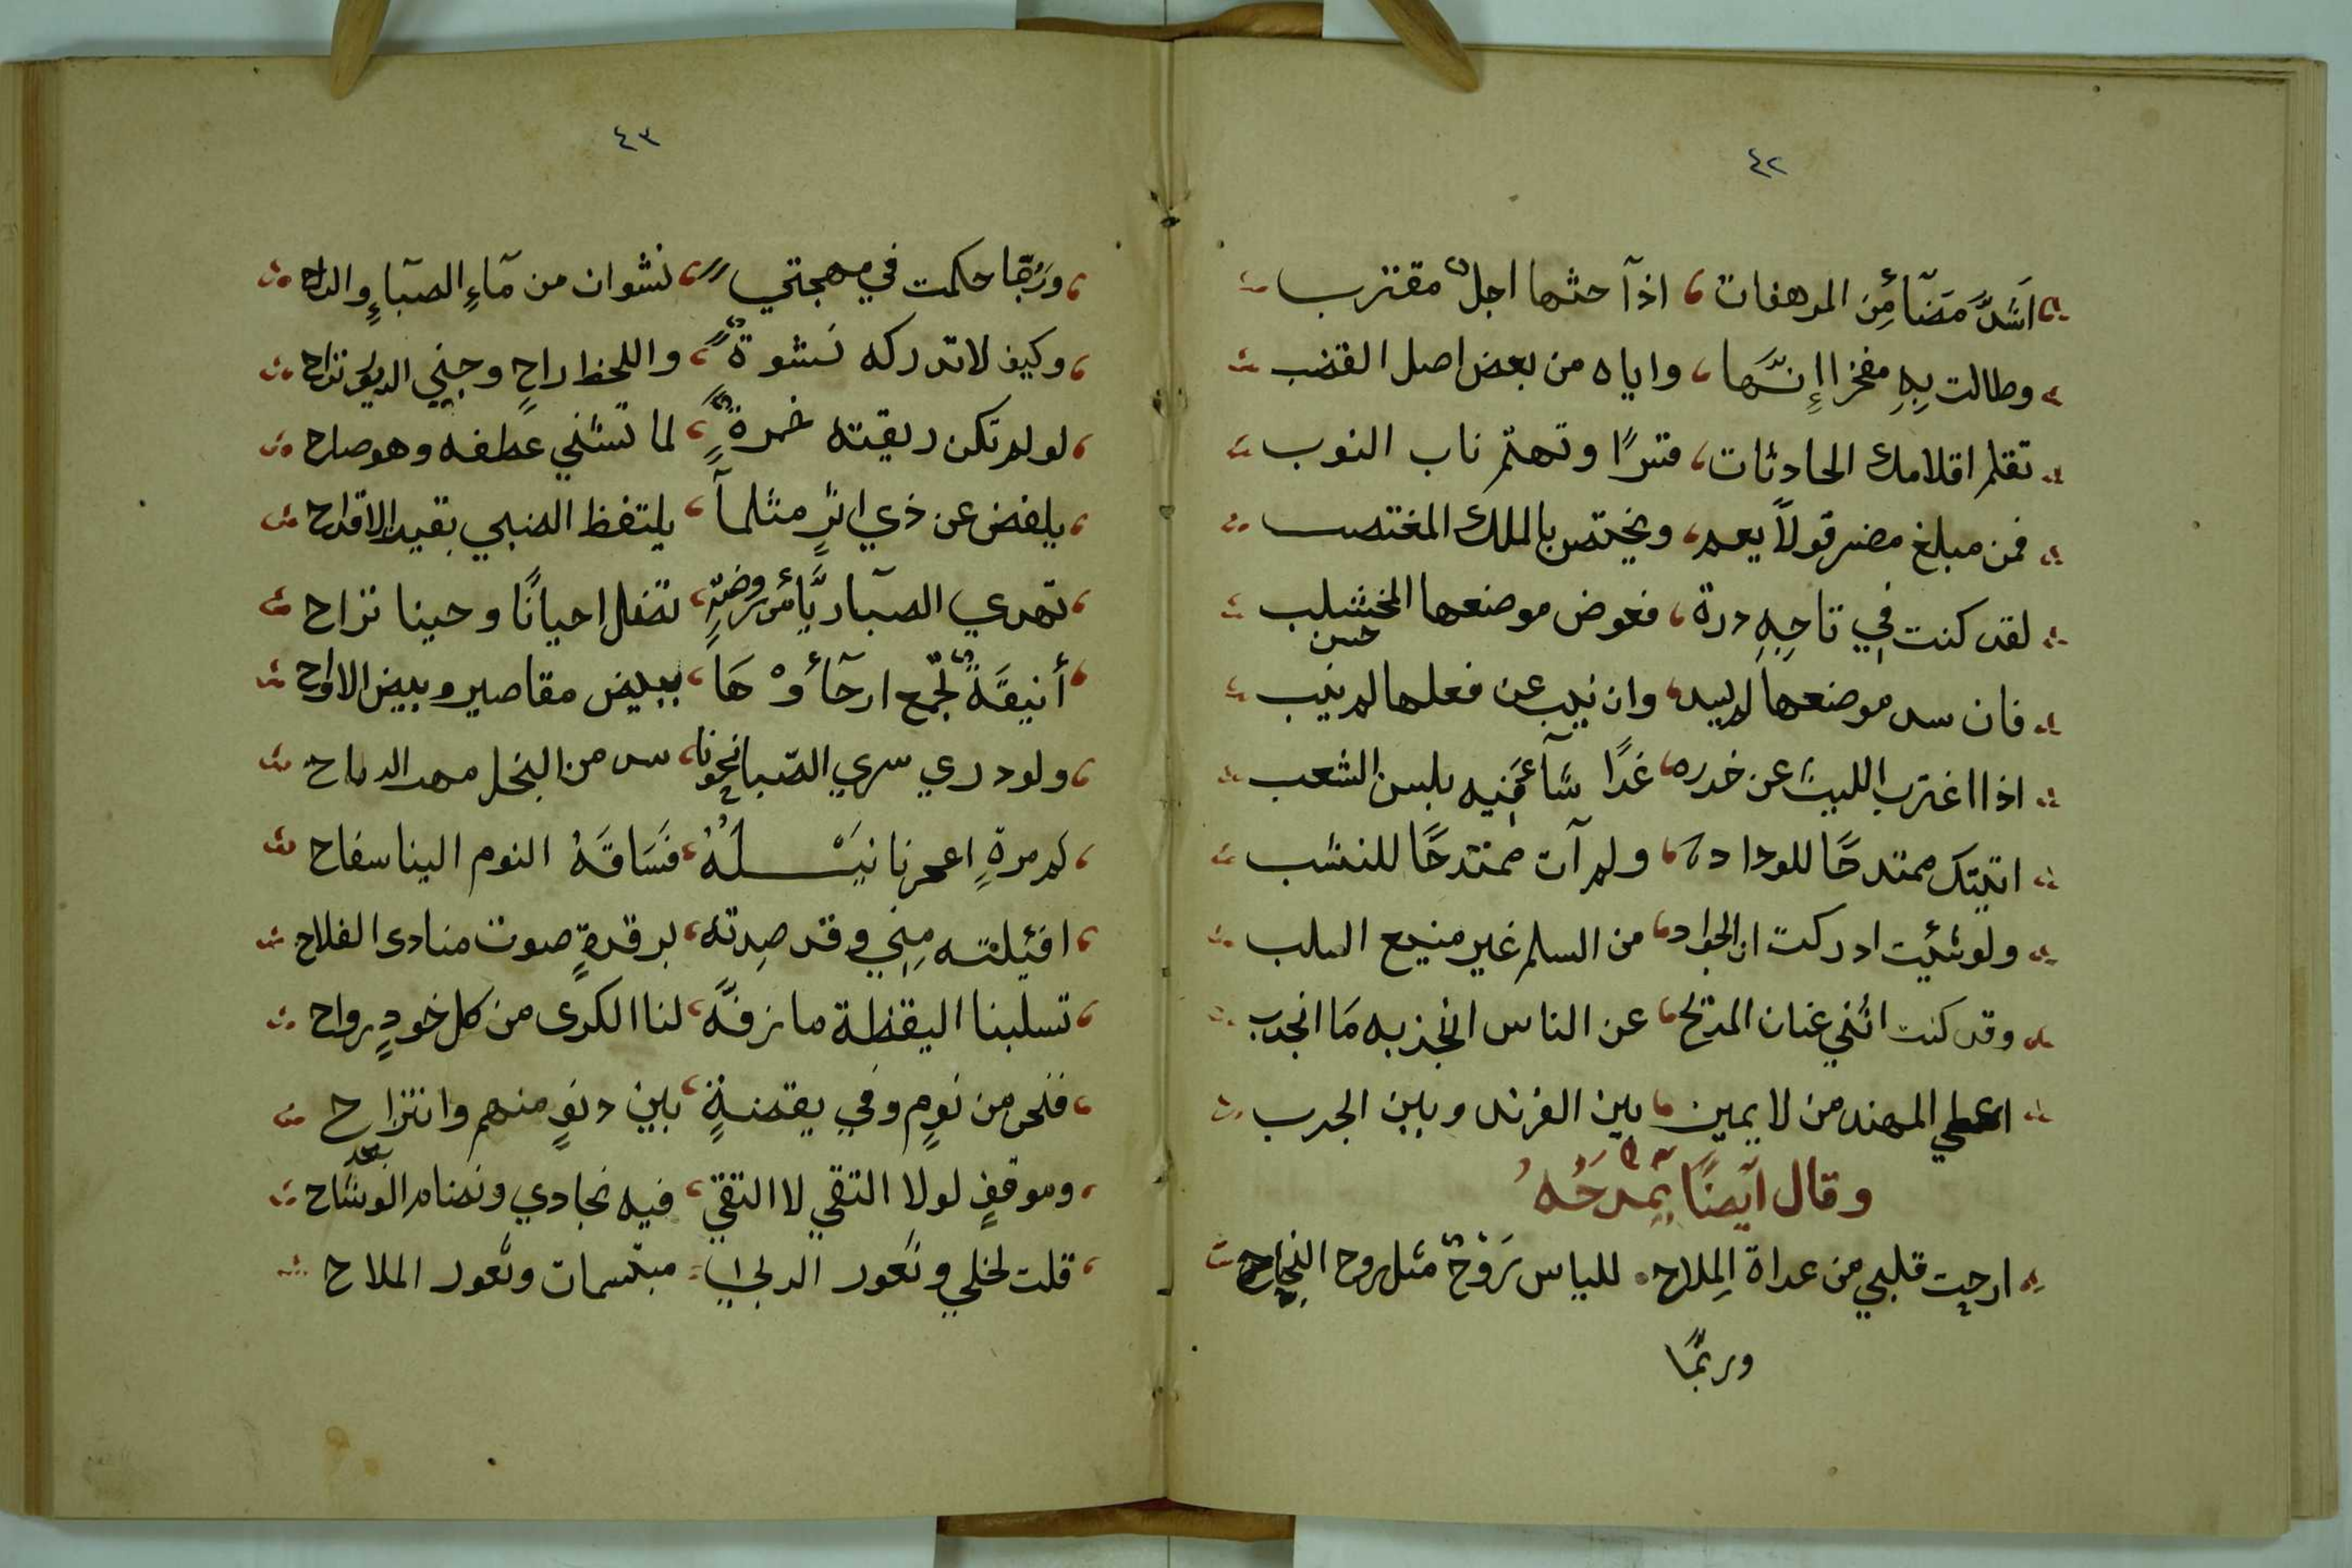 ٤٢
اَشدَّ مَضَآءً مِن المرهفات، اذآ حثها اجلٌ مقترب
وطالت بِهِ مفخرا إِنَّها، واياه من بعض اصل القضب
تقلم اقلامك الحادثات، قترًا وتهتم ناب النوب
فمن مبلغ مضر قولاً يعم، ويختص بالملك المغتصب
لقد كنت فِي تاجِهِ درة، فعوض موضعها المخشلب
حسن
فان سد موضعها لم يسد، وان نيب عن فعلها لم ينب
اذا اغترب الليث عن خدره، غدًا شآءَمنيه بلبس الشعب
اتيتك ممتدحًا للوداد، ولم آت ممتدحًا للنشب
ولو شئت ادركت ان الجواد، من السلم غير منيع السلب
وقد كنت اثني عنان المديح، عن الناس اجذبه مَا انجدب
اعطي المهند من لا يمين، بين الفرند وبين الجرب
وقال آيضًا يمدحُهُ
ارحت قلبي من عداة المِلاح. للياس رَوْحٌ مثل روح النِجاح
وربمَّا
٤٣
ورُبَّما حكمت في مهجتي، نشوان من مآءِ الصبآءِ والراح
وكيف لا تدركه نشوةٌ، واللحظ راحٍ وجنِي الريق راح
لو لم تكن ريقته خمرةٌ، لما تثني عطفه وهو صاح
يلفض عن ذي اثرٍ مثلمآ، يلتفظ الضبي بقيد الاقداح
تهدي الصبآ ريَّا من روضةٍ، تضل احيانًا وحينا تراح
أنيقَةٌ تجمع ارجآؤهَا، ببيض مقاصير وبيض الاداح
ولو دري سري الصّبا نحونا، سد من البخل مهد الرماح
لم مرةٍ اعمرنا نيَـلهُ، فسَاقَهُ النوم الينا سفاح
افتيلته مِنِي وقد صِدته، لرقدةٍ صوت منادى الفلاح
تسلبنا اليقظة ما زفَّهُ، لنا الكرى من كل خودٍ رواح
فنحن من نومٍ وفي يقضةٍ، بين دنوٍ منهم وانتزاح
وموقفٍ لولا التقي لا التقيَ، فيه نجادي ونضام الوشاح
قلت لخلي وثغور الربي، مبتسمات وثغور الملاح